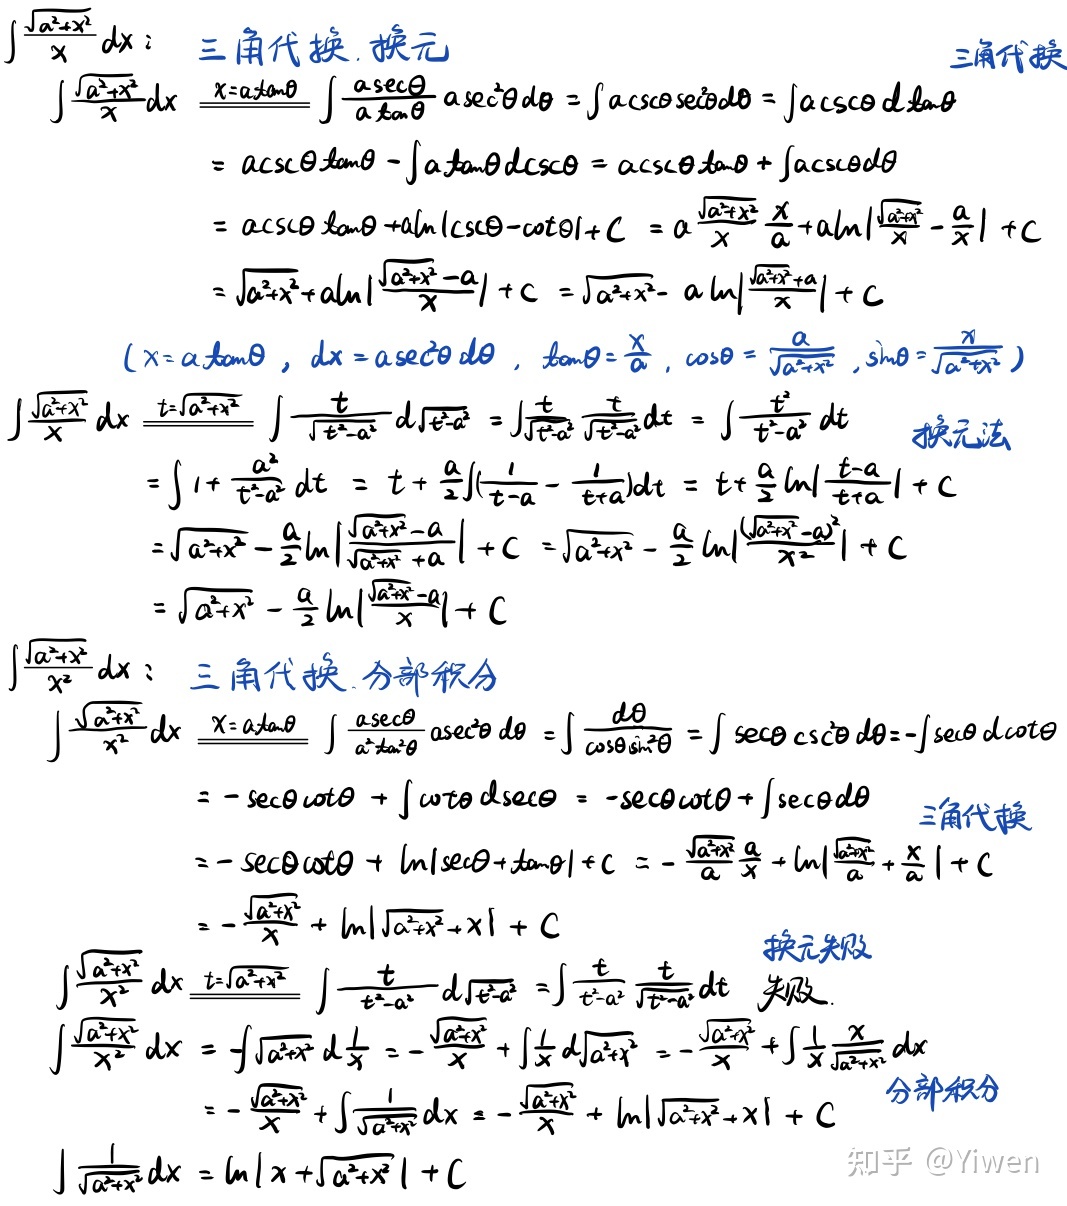 ∫ √(a²+x²)/x dx： 三角代换. 换元
三角代换
∫ √(a²+x²)/x dx x=atanθ ∫ asecθ/atanθ asec²θdθ = ∫acscθsec²θdθ = ∫acscθdtanθ
= acscθtanθ - ∫atanθdcscθ = acscθtanθ + ∫acscθdθ
= acscθtanθ + aln|cscθ-cotθ| + C = a √(a²+x²)/x x/a + aln|√(a²+x²)/x - a/x| + C
= √(a²+x²) + aln|(√(a²+x²)-a)/x| + C = √(a²+x²) - aln|(√(a²+x²)+a)/x| + C
(x=atanθ, dx=asec²θdθ, tanθ=x/a, cosθ=a/√(a²+x²), sinθ=x/√(a²+x²))
∫ √(a²+x²)/x dx t=√(a²+x²) ∫ t/√(t²-a²) d√(t²-a²) = ∫ t/√(t²-a²) t/√(t²-a²) dt = ∫ t²/(t²-a²) dt
换元法
= ∫ 1 + a²/(t²-a²) dt = t + a/2 ∫(1/(t-a) - 1/(t+a))dt = t + a/2 ln|(t-a)/(t+a)| + C
= √(a²+x²) - a/2 ln|(√(a²+x²)-a)/(√(a²+x²)+a)| + C = √(a²+x²) - a/2 ln|(√(a²+x²)-a)²/x²| + C
= √(a²+x²) - a/2 ln|(√(a²+x²)-a)/x| + C
∫ √(a²+x²)/x² dx： 三角代换. 分部积分
∫ √(a²+x²)/x² dx x=atanθ ∫ asecθ/a²tan²θ asec²θdθ = ∫ dθ/cosθsin²θ = ∫ secθcsc²θdθ = -∫secθdcotθ
= -secθcotθ + ∫cotθdsecθ = -secθcotθ + ∫secθdθ
三角代换
= -secθcotθ + ln|secθ+tanθ| + C = - √(a²+x²)/a a/x + ln|√(a²+x²)/a + x/a| + C
= - √(a²+x²)/x + ln|√(a²+x²)+x| + C
换元失败
∫ √(a²+x²)/x² dx t=√(a²+x²) ∫ t/(t²-a²) d√(t²-a²) = ∫ t/(t²-a²) t/√(t²-a²) dt 失败.
∫ √(a²+x²)/x² dx = -∫√(a²+x²) d 1/x = - √(a²+x²)/x + ∫ 1/x d√(a²+x²) = - √(a²+x²)/x + ∫ 1/x x/√(a²+x²) dx
分部积分
= - √(a²+x²)/x + ∫ 1/√(a²+x²) dx = - √(a²+x²)/x + ln|√(a²+x²)+x| + C
∫ 1/√(a²+x²) dx = ln|x+√(a²+x²)| + C
知乎 @Yiwen